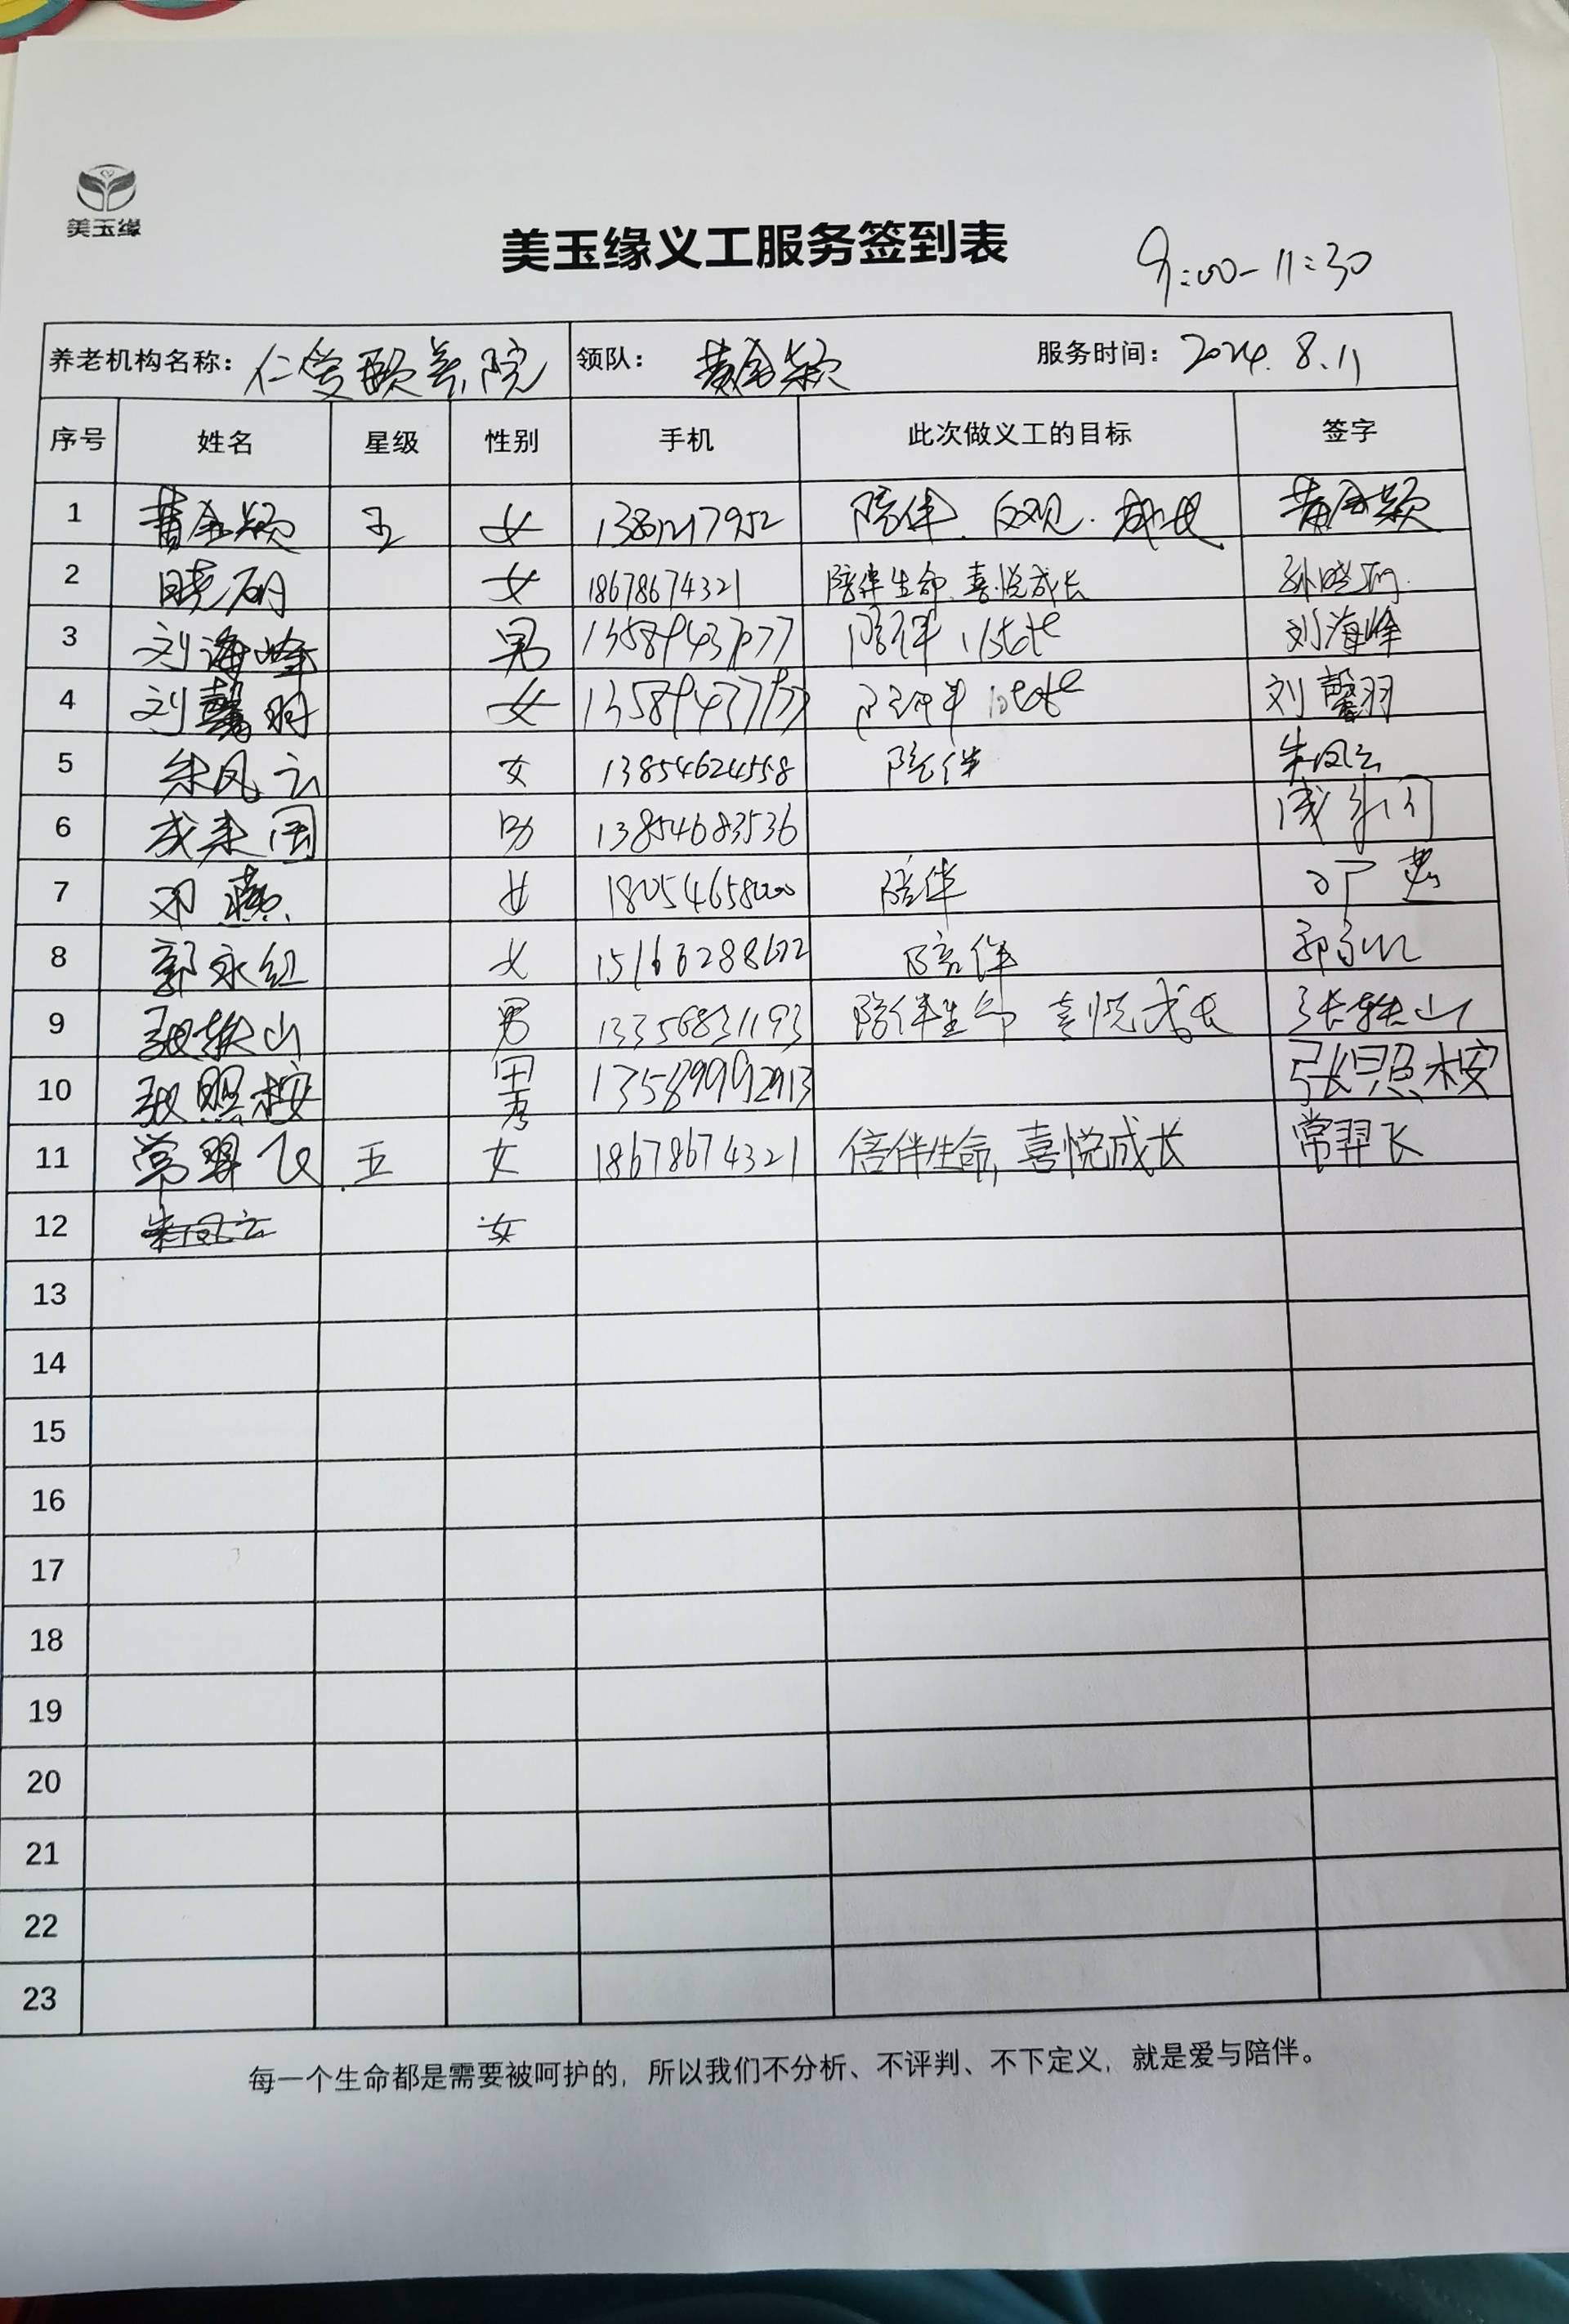 美玉缘
美玉缘义工服务签到表
9:00-11:30
养老机构名称: 仁爱颐养院 领队: 黄金颖 服务时间: 2024.8.11
序号 姓名 星级 性别 手机 此次做义工的目标 签字
1 黄金颖 五 女 陪伴、反观、成长 黄金颖
2 晓玥 女 18678674321 陪伴生命、喜悦成长 孙晓玥
3 刘海峰 男 陪伴 刘海峰
4 刘馨羽 女 陪伴 刘馨羽
5 朱凤云 女 13854624558 陪伴 朱凤云
6 成来国 男 13854683536
7 邓燕 女 18054658000 陪伴 邓燕
8 郭永红 女 陪伴 郭永红
9 张轶山 男 13356831193 陪伴生命 喜悦成长 张轶山
10 张照桉 男 张照桉
11 常羿飞 五 女 18678674321 倍伴生命, 喜悦成长 常羿飞
12 朱凤云 女
13
14
15
16
17
18
19
20
21
22
23
每一个生命都是需要被呵护的，所以我们不分析、不评判、不下定义，就是爱与陪伴。